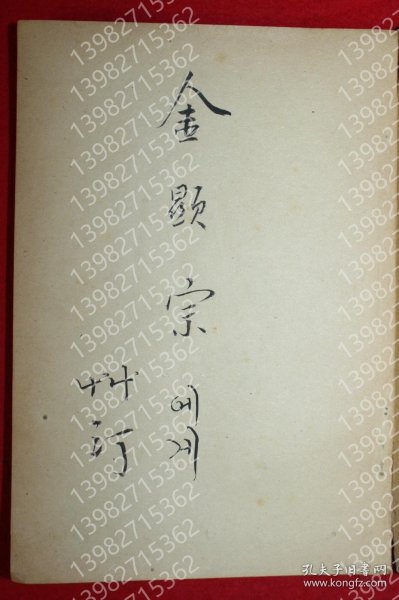 金顯宗에게
艸汀
13982715362
孔夫子旧书网
https://www.kongfz.com